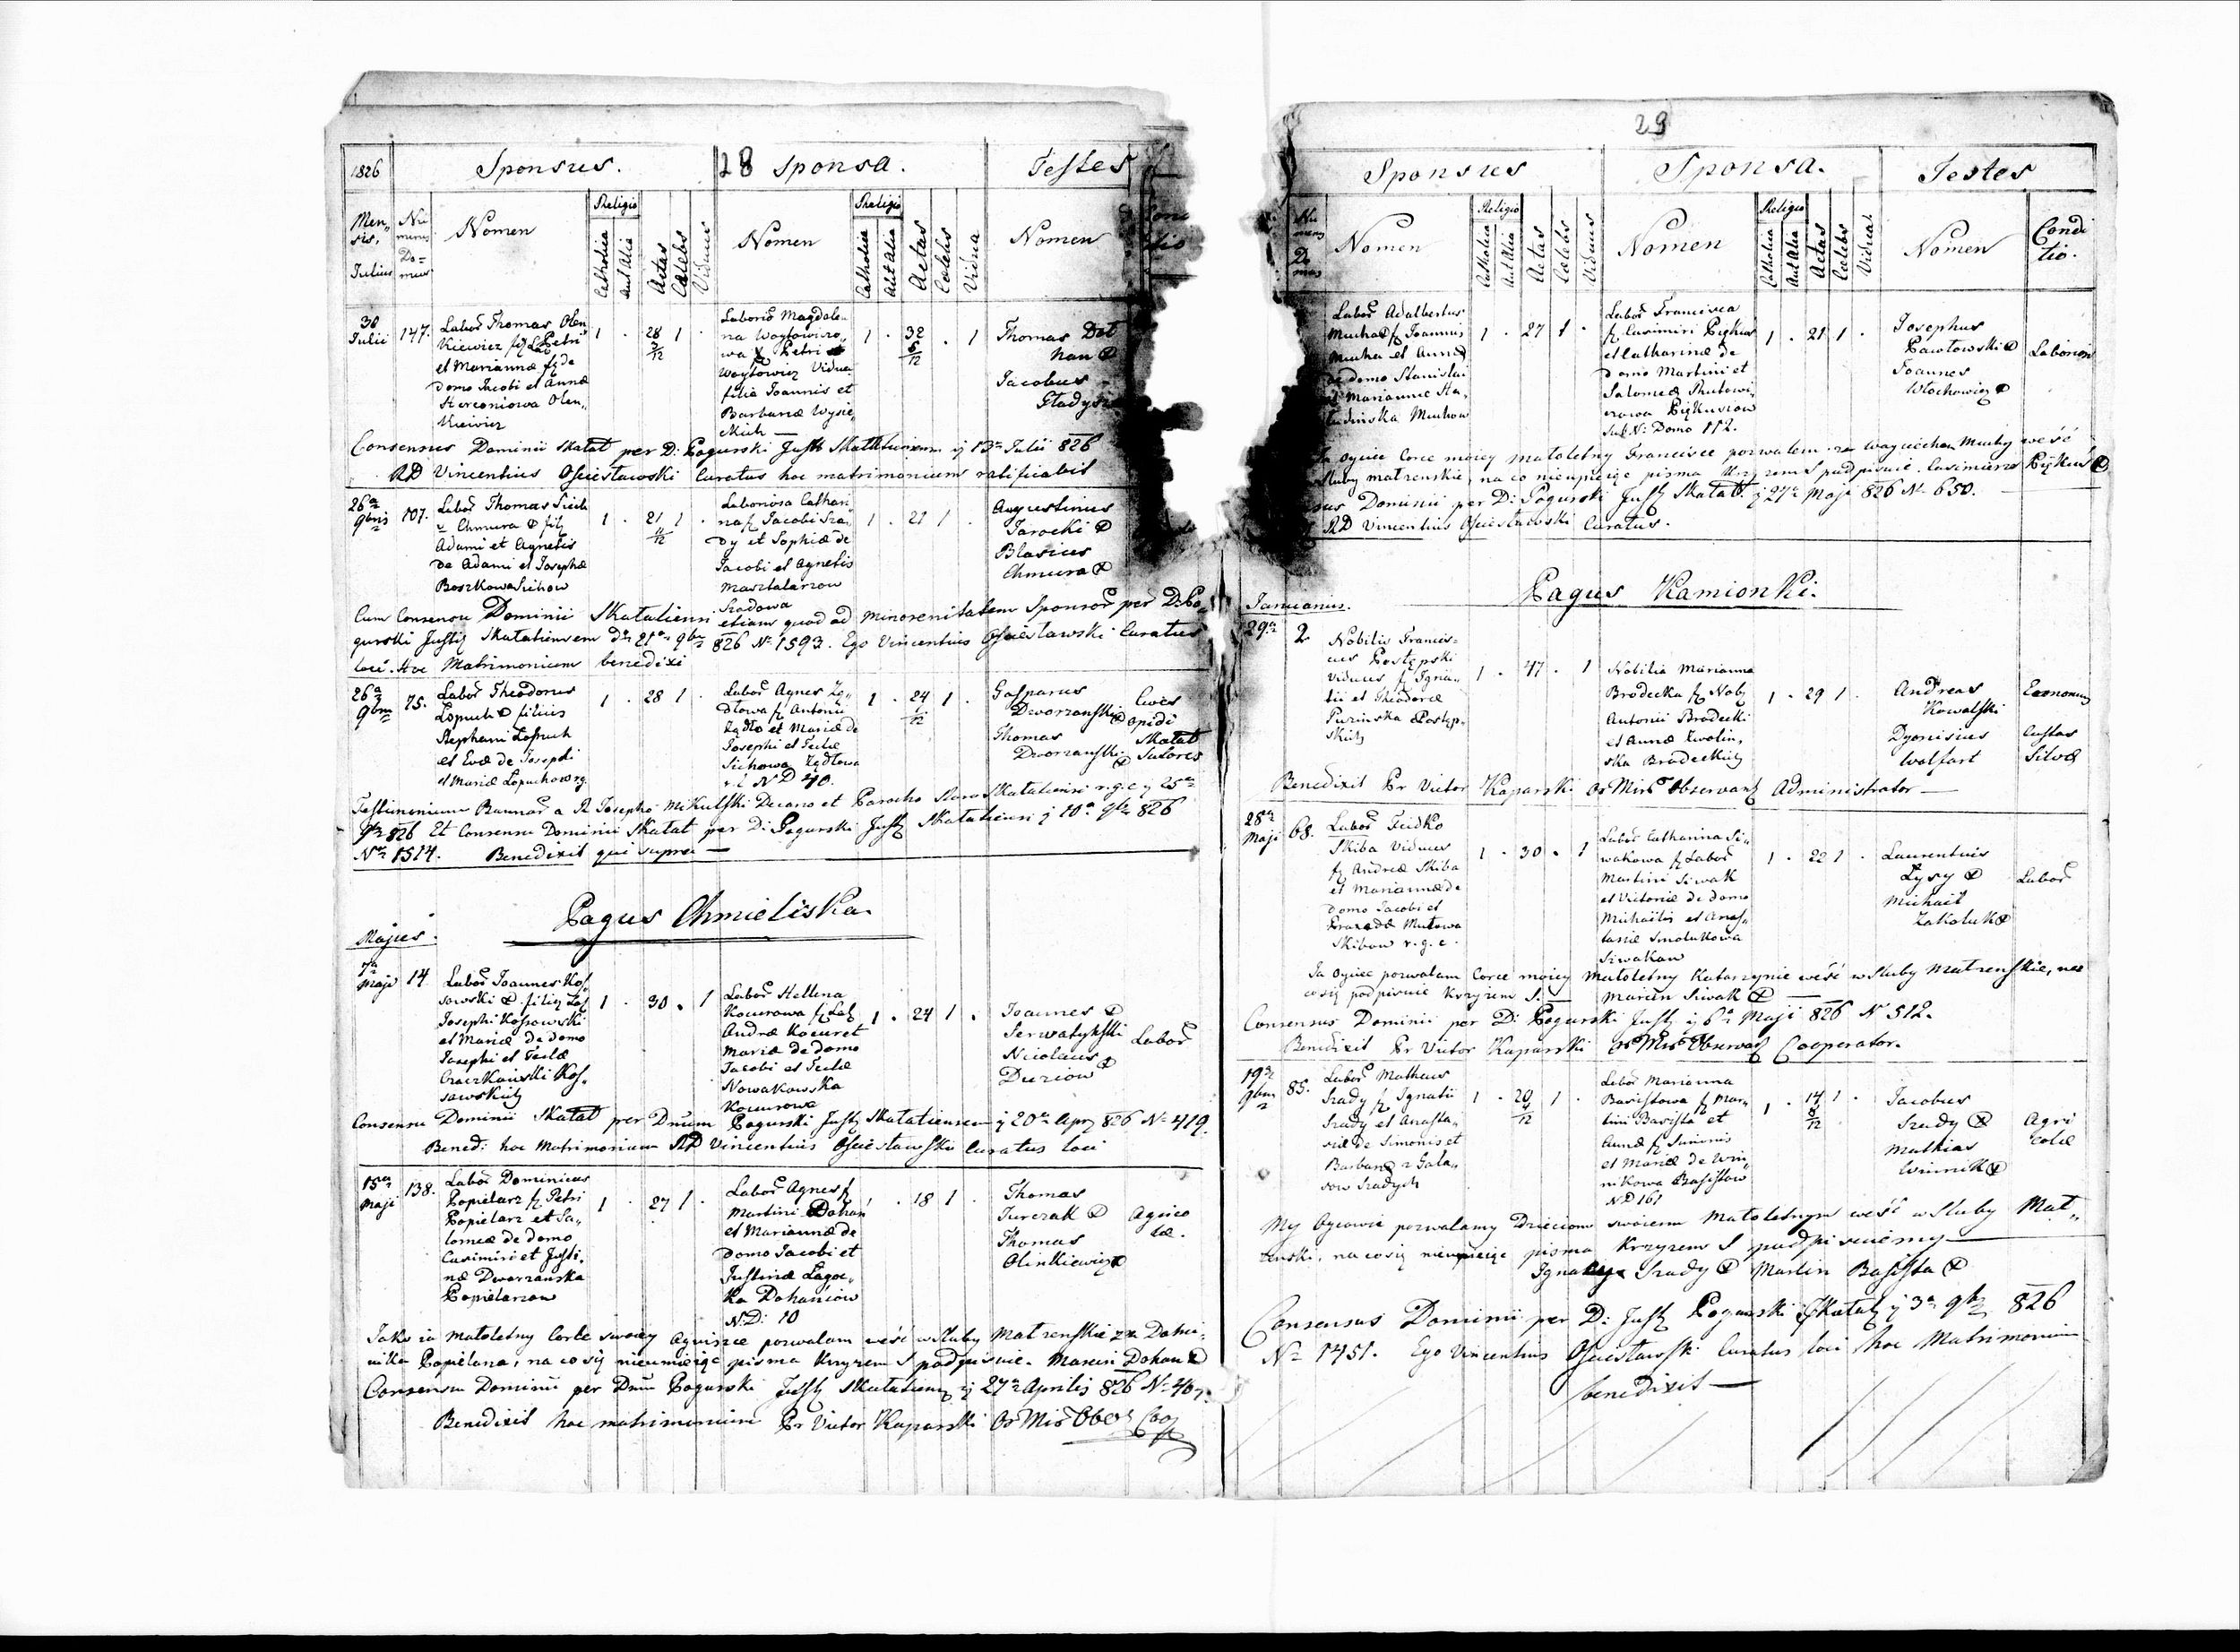 1826
Sponsus.
28 Sponsa.
Testes
Mensis, Julius
Numerus Domus
Nomen
Religio
Catholica
Aut Alia
Aetas
Caelebs
Viduus
Nomen
Religio
Catholica
Aut Alia
Aetas
Caelebs
Vidua
Nomen
30 Julii 147.
Labor Thomas Olen
kiewicz
Petri
et Mariannæ
de
domo Jacobi et Annæ
Olen„
kiewicz
1 . 28 1 .
Laborio Magdale„
na Woytowiczo„
wa
Petri
Woytowicz Vidua
filia Joannis et
Barbaræ Wysoc„
kich —
1 . 32 . 1
Thomas Dol
han
Jacobus
Gładysz
Consensus Dominii Skałat per D: Pogurski Just Skałatensem ÿ 13a Julii 826
RD Vincentius Ościesławski Curatus hoc matrimonium ratificabit
26a 9bris 107.
Labor Thomas Sicich
v Chmura filj
Adami et Agnetis
de Adami et Josephæ
Boszkowa Sichow
1 . 21 1 .
Laboriosa Cathari„
na f Jacobi Sza„
dy et Sophiæ de
Jacobi et Agnetis
Masztalarzow
Szadowa
1 . 21 1
Augustinus
Jarocki
Blasius
Chmura
Cum Consensu Dominii Skałatiensi etiam quod ad minorenitatem Sponsor per D: Po„
gurski Justz Skałatiensem Do 21a 9bris 826 No 1593. Ego Vincentius Ościesławski Curatus
loci. Hoc Matrimonium benedixi
26a 9bris 75.
Labor Theodorus
Łopuch filius
Stephani Łopuch
et Evæ de Josephi
et Mariæ Łopuchow r.g.
1 . 28 1 .
Labor Agnes Żą„
dłowa f Antonii
Żądło et Mariæ de
Josephi et Teclæ
Sichowa Żądłowa
N D 40.
1 . 24 1 .
Gasparus
Dworzanski
Thomas
Dworzanski
Cives
opidi
Skałat
Sutores
Testimonium Bannor a R Josepho Mikulski Decano et Parocho Staro Skałatiensi r.g.c ÿ 25a
9br 826 Et Consensu Dominii Skałat per D: Pogurski Justz Skałatiensi ÿ 10a 9br 826
No 1514. Benedixit qui supra —
Pagus Chmieliska.
Majus.
7a Maji 14
Labor Joannes Kos„
sowski filius
Josephi Kossowski
et Mariæ de domo
Josephi et Teclæ
Kos„
sowskich
1 . 30 . 1
Labor Hellena
Kocurowa f Lab
Andræ Kocur et
Mariæ de domo
Jacobi et Teclæ
Nowakowska
Kocurowa
1 . 24 1 .
Joannes
Serwatynski
Nicolaus
Duziow
Labor
Consensu Dominii Skałat per Dnum Pogurski Justz Skałatiensem ÿ 20a Apr 826 No 419.
Bened: hoc Matrimonium RD Vincentius Ościesławski Curatus loci
15a Maji 138.
Labor Dominicus
Popielarz f Petri
Popielarz et Sa„
lomeæ de domo
Casimiri et Justi„
næ Dworzanska
Popielarzow
1 . 27 1 .
Labor Agnes f
Martini Dohan
et Mariannæ de
Domo Jacobi et
Justinæ Lagoc„
ka Dohaniow
N: D: 10
1 . 18 1 .
Thomas
Jurczak
Thomas
Olinkiewicz
Agrico
læ.
Jako ia małoletny Corce swoiey Agnisce pozwalam wejść w Sluby Matrenskie za Domi„
nika Popielarza, na co się nieumieięc pisma krzyzem S podpisuie. Marcin Dohan
Consensu Dominii per Dnum Pogurski Justz Skałatiensi ÿ 27a Aprilis 826 No 467.
Benedixit hoc matrimonium Pr Victor Kaparski Or Min Obser Coop
29
Sponsus
Sponsa.
Testes
Numerus Domus
Nomen
Religio
Catholica
Aut Alia
Aetas
Caelebs
Viduus
Nomen
Religio
Catholica
Aut Alia
Aetas
Caelebs
Vidua
Nomen
Condi
tio.
Labor Adalbertus
Mucha f Joannis
Mucha et Annæ
de domo Stanislai
et Mariannæ
Muchow
1 . 27 1 .
Labor Francisca
f Casimiri Piękus
et Catharinæ de
domo Martini et
Salomeæ
Piękusiow
sub N: Domo 112.
1 . 21 1 .
Josephus
Pawłowski
Joannes
Włochowicz
Laboriosi
Ja oyciec Corce moiey małoletny Francisce pozwalam za Woyciecha Muchy wejść
Sluby matrenskie, na co nieumieięc pisma Krzyzem S podpisuie. Casimierz Piękus
Dominii per D: Pogurski Justz Skałat. ÿ 27a Maji 826 N. 650. —
RD Vincentius Ościesławski Curatus.
Pagus Kamionki.
Januarius.
29a 2
Nobilis Francis„
cus Postępski
Viduus f Igna„
tii et Theodoræ
Puzinska Postęp„
skich
1 . 47 . 1
Nobilia Marianna
Brodecka f Nob
Antonii Brodecki
et Annæ Zwolin„
ska Brodeckich
1 . 29 1 .
Andreas
Kowalski
Dyonisius
Wolfart
Economus
Custos
Silvæ
Benedixit Pr Victor Kaparski Or Min Observant Administrator —
28a Maji 68.
Labor Feidko
Skiba Viduus
f Andreæ Skiba
et Mariannæ de
domo Jacobi et
Mutowa
Skibow r.g.c.
1 . 30 . 1
Labor Catharina Si„
wakowa f Labor
Martini Siwak
et Victoriæ de domo
Michaelis et Anas„
tasiæ Smolukowa
Siwakow
1 . 22 1 .
Laurentius
Łysy
Michael
Zakaluk
Labor
Ja Oyciec pozwalam Corce moiey Małoletny Katarzynie wejść w Sluby Matrenskie, na
co się podpisuie Krzyzem S. — Marcin Siwak —
Consensus Dominii per D: Pogurski Justz ÿ 6a Maji 826 N 512.
Benedixit Pr Victor Kaparski Or Min Observan Cooperator.
19a 9bris 85.
Labor Matheus
Szady f Ignatii
Szady et Anasta„
siæ de Simonis et
Barbaræ z Gala„
sow Szadych
1 . 20 1 .
Labor Marianna
Basistowa f Mar„
tini Basista et
Annæ f Simonis
et Mariæ de Win„
nikowa Basistow
N D 161
1 . 14 1 .
Jacobus
Szady
Mathias
Winnik
Agri
colæ
My Oycowie pozwalamy Dzieciom swoiem Małoletnym wejść w Sluby Mat„
renski, na co się nieumieięc pisma Krzyzem S podpisuiemy —
Ignacy Szady Martin Basista
Consensus Dominii per D: Justz Pogurski Skałat ÿ 3a 9br 826
No 1451. Ego Vincentius Ościesławski Curatus loci hoc Matrimonium
benedixit —